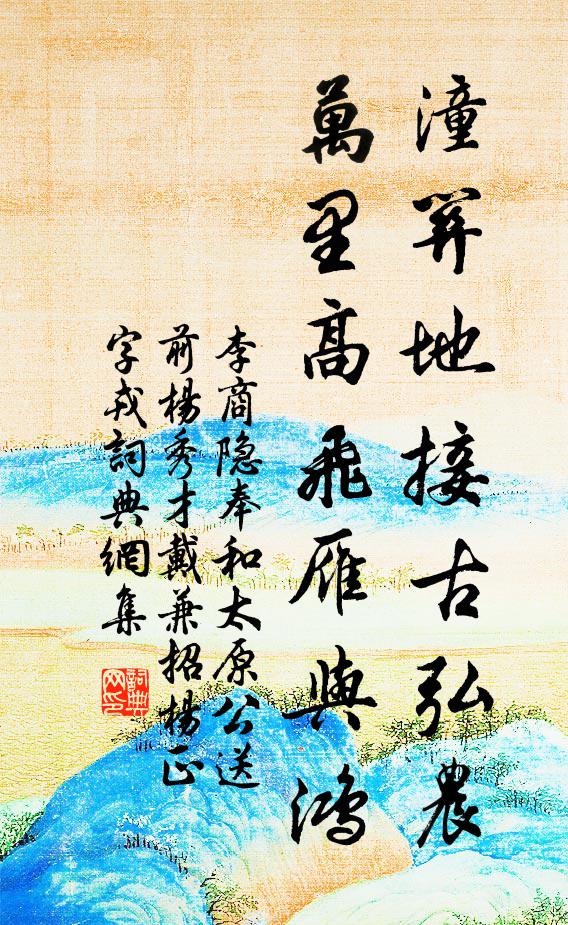 潼關地接古弘農
萬里高飛雁與鴻
李商隐奉和太原公送
前楊秀才戴兼招楊正
字戎詞典網集
詞典網印